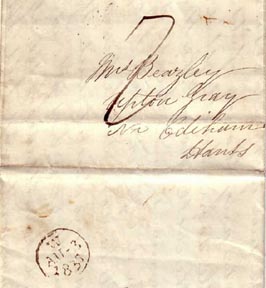 7
Mrs Beazley
Upton Gray
Nr Odiham
Hants
W
AU-3
1837